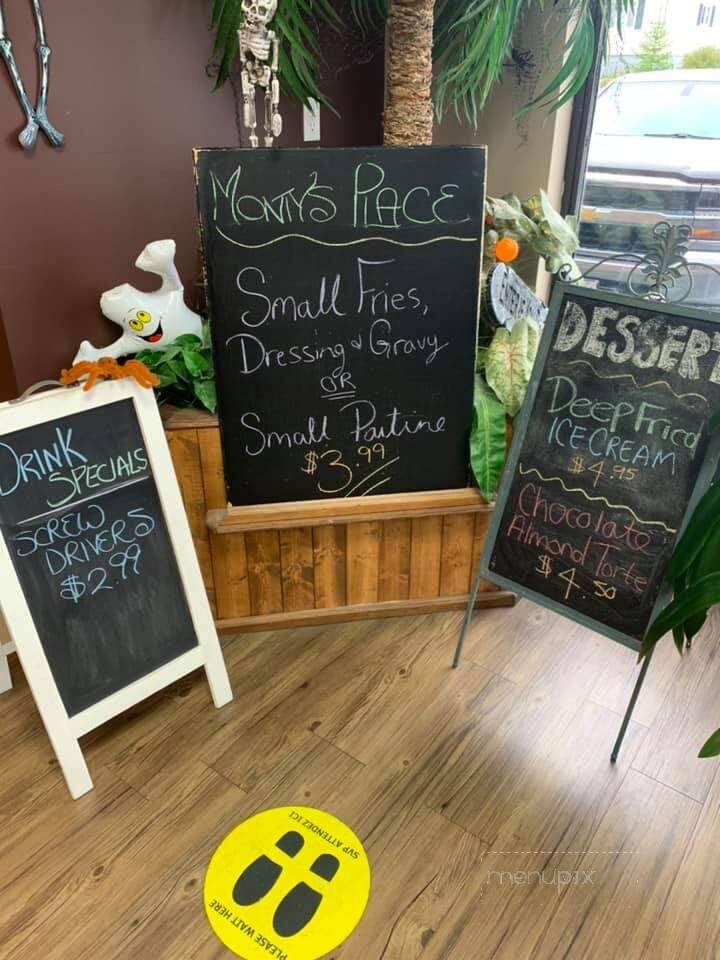 MONTY'S PLACE
Small Fries,
Dressing & Gravy
OR
Small Poutine
$3.99
DRINK
SPECIALS
SCREW
DRIVERS
$2.99
DESSERT
Deep Fried
ICE CREAM
$4.95
Chocolate
Almond Torte
$4.50
SVP ATTENDEZ ICI
PLEASE WAIT HERE
menupix